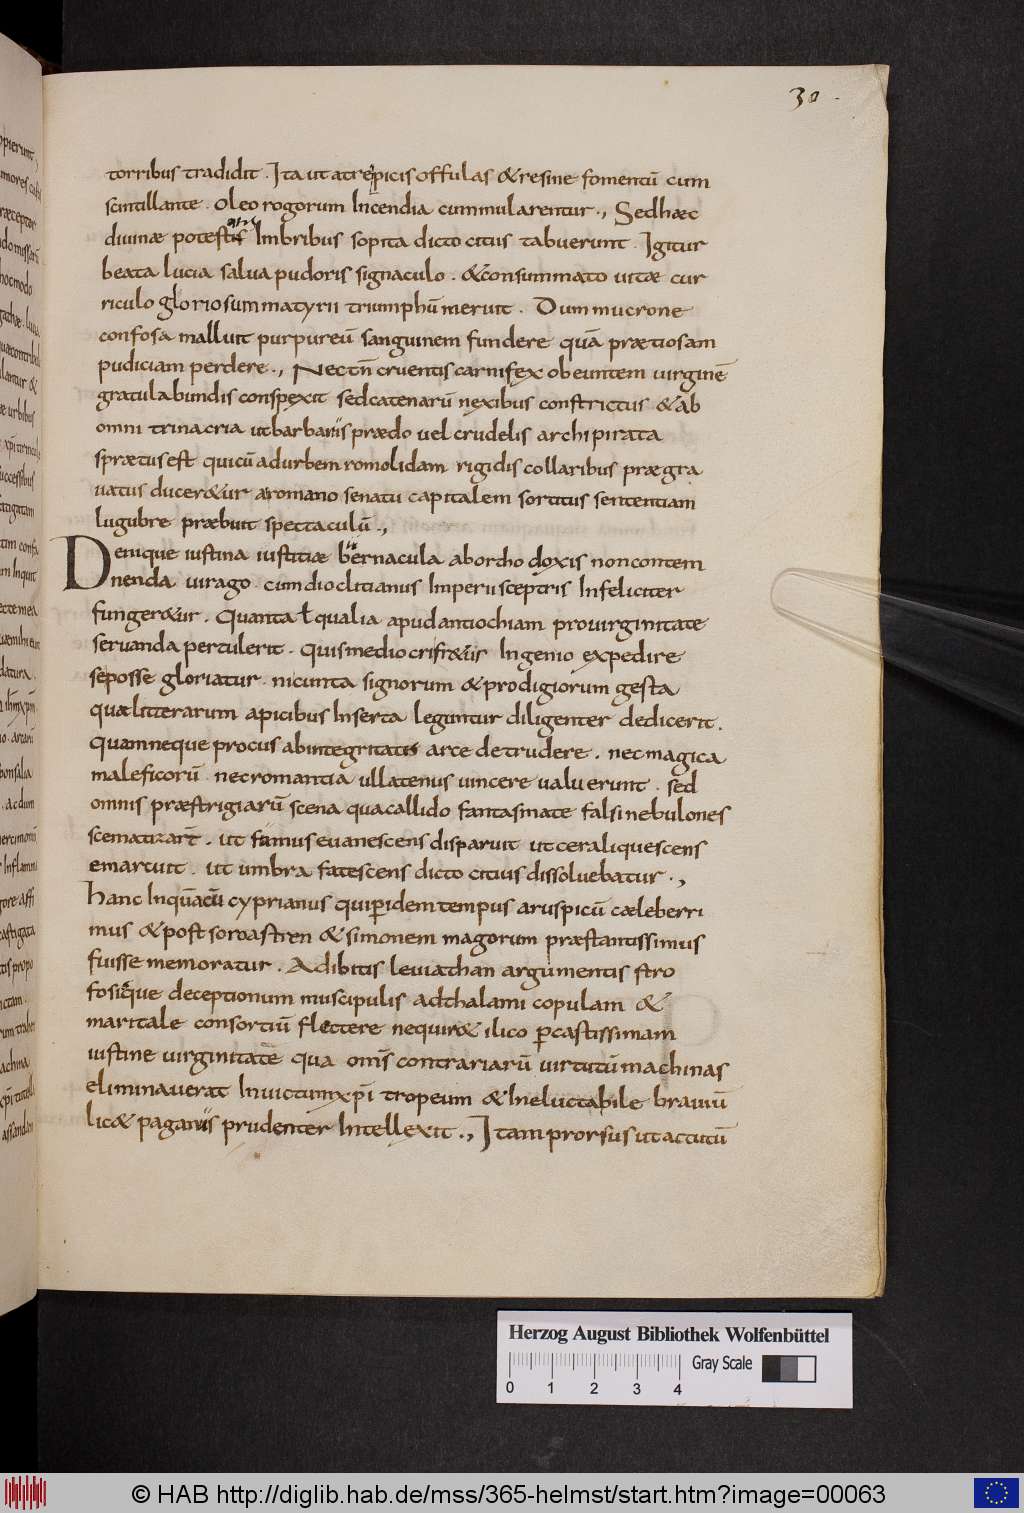 30
torribus tradidit . Ita ut atre picis offulas & resine fomentū cum
scintillante . oleo rogorum Incendia cummularentur ., Sed haec
diuinae potestis Imbribus sopita dicto citus tabuerunt . Igitur
beata lucia salua pudoris signaculo . & consummato uitae cur
riculo gloriosum matyrii triumphū meruit . Dum mucrone
confosa malluit purpureū sanguinem fundere quā praetiosam
pudiciam perdere ., Nec tn̄ cruentis carnifex obeuntem uirginē
gratulabundis conspexit sed catenarū nexibus constrictus & ab
omni trinacria ut barbariis praedo uel crudelis archipirata
spraetus est quicū ad urbem romolidam rigidis collaribus praegra
uatus ducer&ur a romano senatu capitalem sortitus sententiam
lugubre praebuit spectaculū .,
Denique iustina iustitiae bernacula ab ortho doxis non contem
nenda uirago . cum dioclitianus Imperii sceptris Infeliciter
funger&ur . Quanta ł qualia apud antiochiam pro uirginitate
seruanda pertulerit . quis mediocris fr&us Ingenio expedire
se posse gloriatur . ni cunta signorum & prodigiorum gesta
quae litterarum apicibus Inserta leguntur diligenter dedicerit .
Quam neque procus ab integritatis arce detrudere . nec magica
maleficorū necromantia ullatenus uincere ualuerunt . sed
omnis praestrigiarū scena qua callido fantasmate falsi nebulones
scematizart̄ . ut fumus euanescens disparuit ut cera liquescens
emarcuit . ut umbra fatescens dicto citius dissoluebatur .,
hanc Inquā cū cyprianus qui pridem tempus aruspicū caeleberri
mus & post soroastren & simonem magorum praestantissimus
fuisse memoratur . Adibitis leuiathan argumentis stro
fosique deceptionum muscipulis ad thalami copulam &
maritale consortiū flectere nequir& ilico p castissimam
iustine uirginitatē qua om̄s contrariarū uirtutū machinas
eliminauerat Inuictum xp̄i tropeum & Ineluctabile brauiū
lic& paganus prudenter Intellexit ., Ita prorsus ut actutū
Herzog August Bibliothek Wolfenbüttel
Gray Scale
0 1 2 3 4
© HAB http://diglib.hab.de/mss/365-helmst/start.htm?image=00063